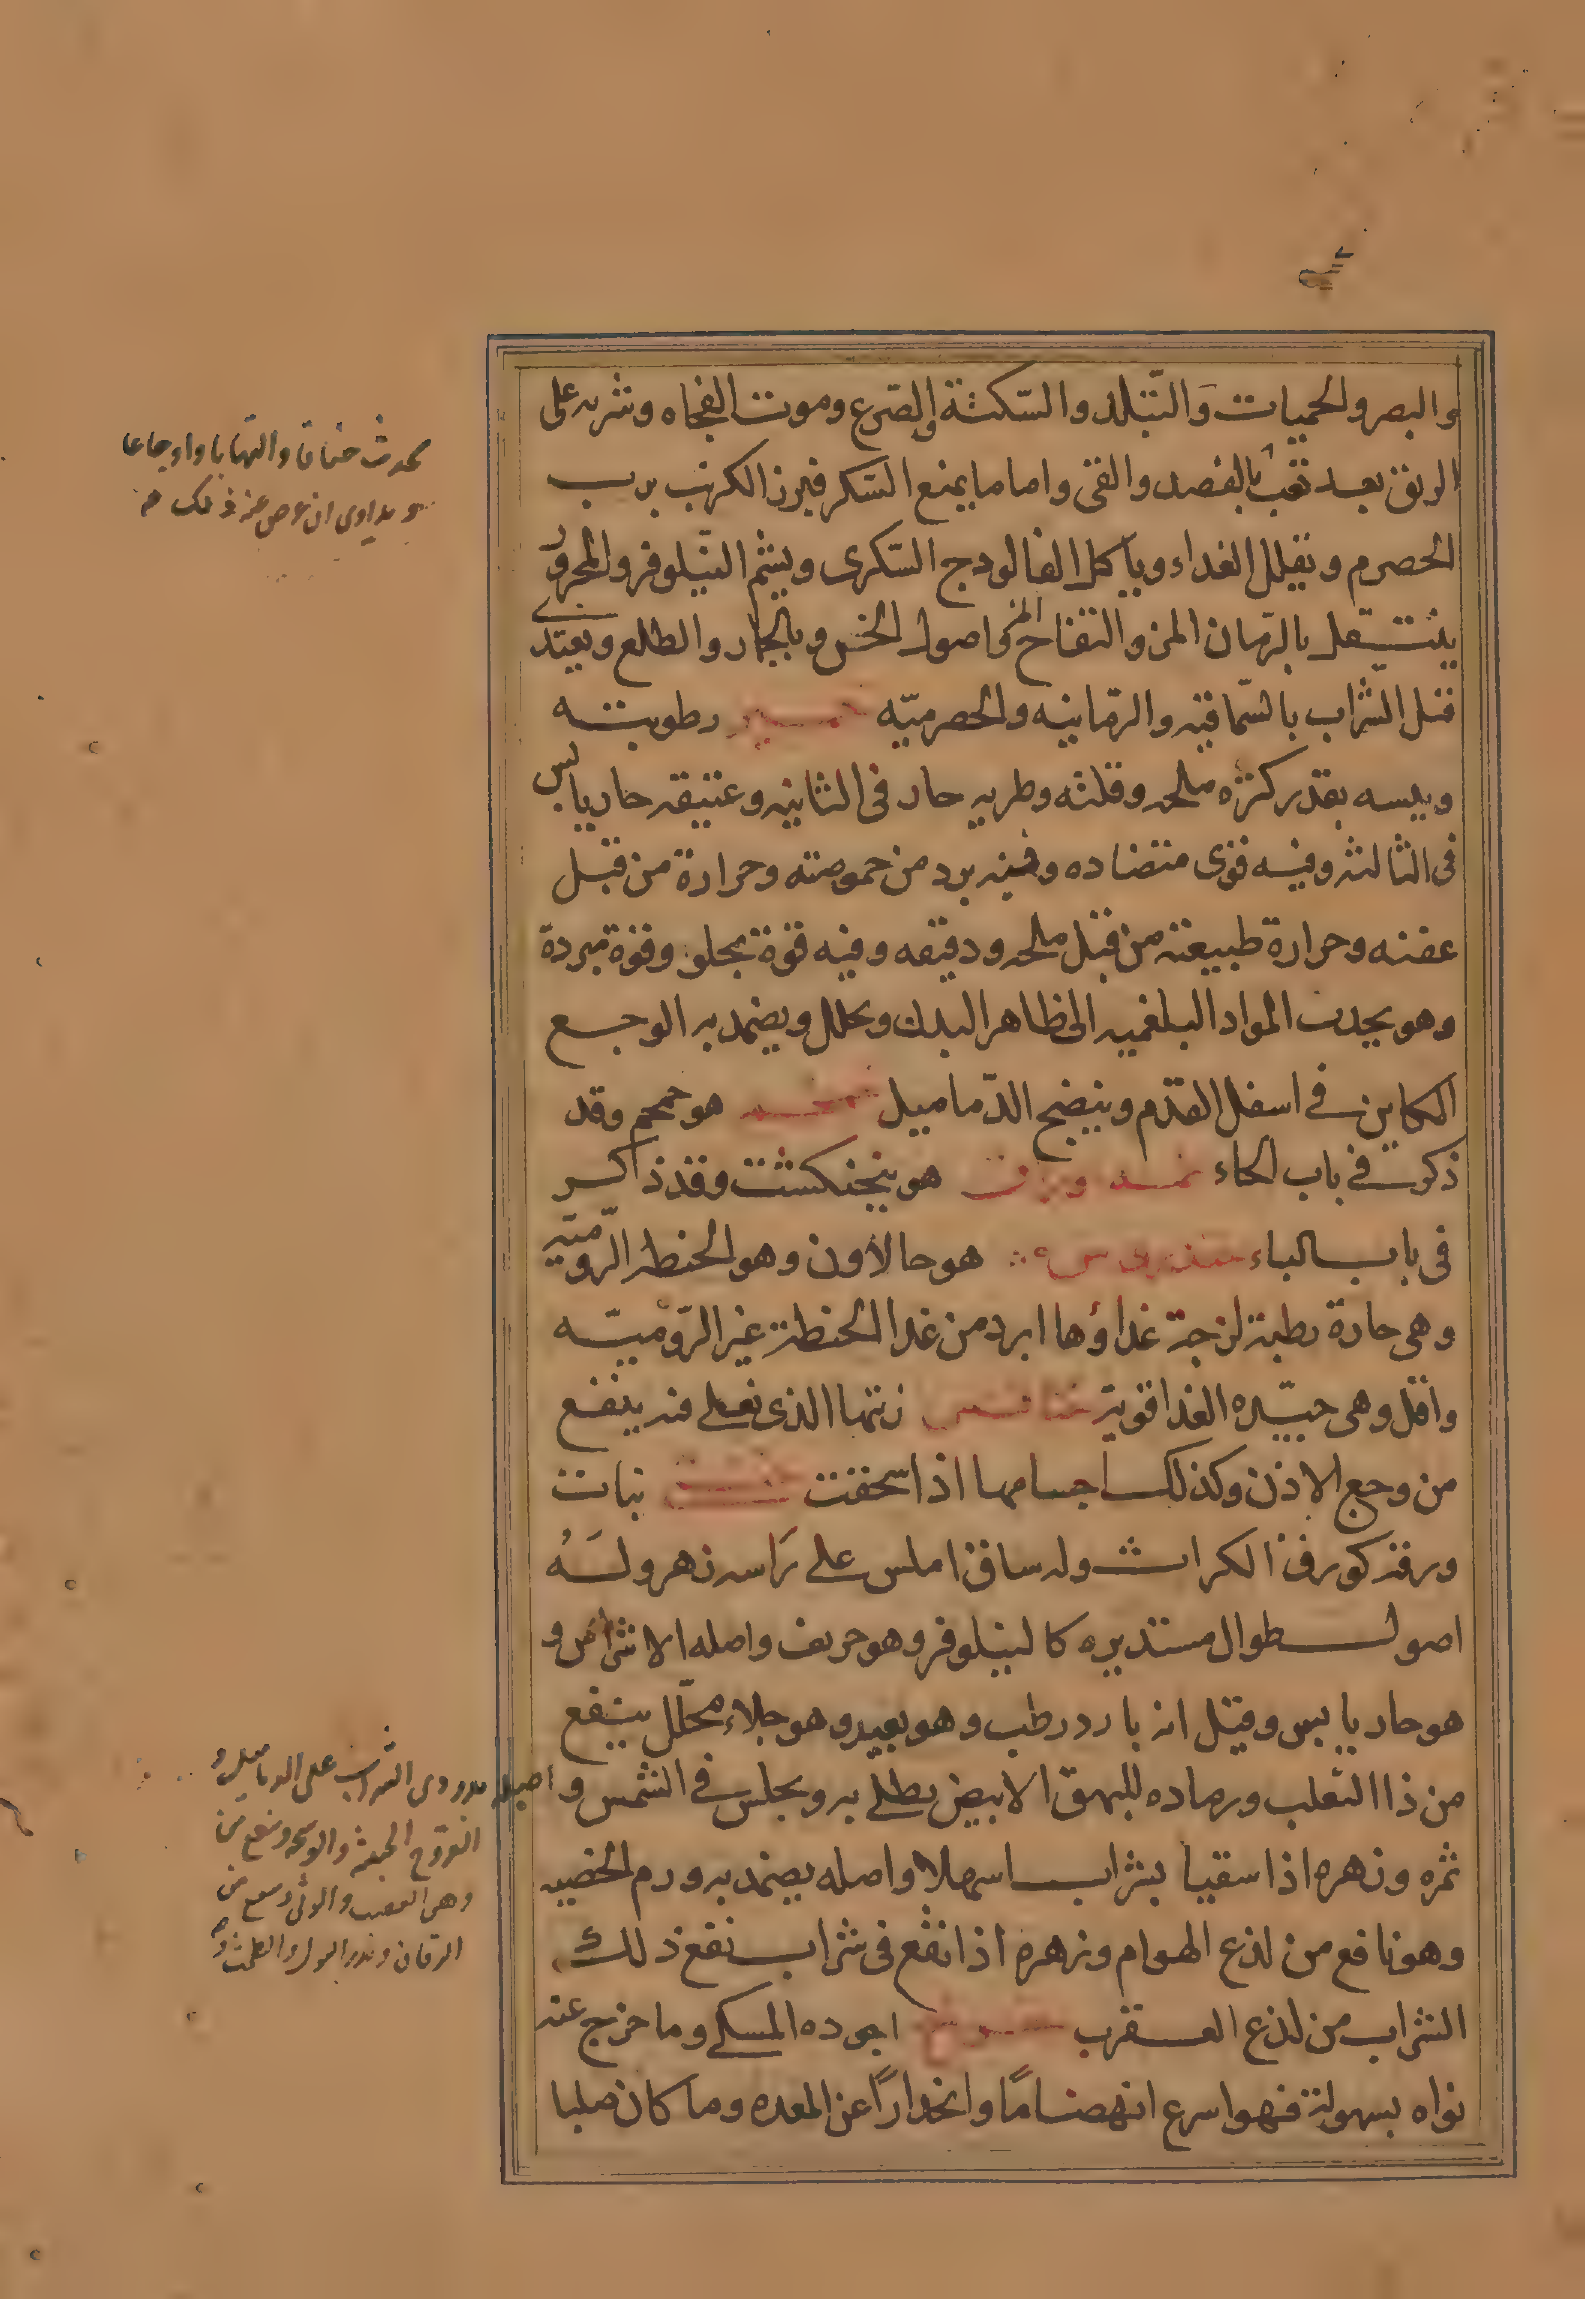 والبصر والحميات والتبلد والسكتة والصرع وموت الفجاه وشربه على
الريق بعد تعب بالفصد والقئ واما ما يمنع السكر فبزر الكرنب برب
الحصرم وتقليل الغداء وياكل الفالودج السكرى ويشم النيلوفر والمحرور
ينتقل بالرمان المز والتفاح المز واصول الخس وبالجمار والطلع ويغتدى
قبل الشراب بالسماقيه والرمانيه والحصرميه خمير رطوبته
ويبسه بقدر كثره ملحه وقلته وطريه حار فى الثانيه وعتيقه حار يابس
فى الثالثه وفيه قوى متضاده وفيه برد من حموصته وحرارة من قبل
عفنه وحرارة طبيعته من قبل ملحه ودقيقه وفيه قوة تجلو وقوة مبردة
وهو يجذب المواد البلغميه الى ظاهر البدن ويحلل ويضمد به الوجع
الكاين فى اسفل القدم وينضج الدماميل هو حمحم وقد
ذكرت فى باب الحاء هو بنجنكشت وقد ذكر
فى باب الباء خندروس هو حالاون وهو الحنطه الروميه
وهى حارة رطبة لزجة غداؤها ابرد من غدا الحنطة غير الروميه
واقل وهى جيده الغدا قوية خنافس زيتها الذى تغلى فيه ينفع
من وجع الاذن وكذلك اجسامها اذا سحقت خنثى نبات
ورقه كورق الكراث وله ساق املس على راسه زهر وله
اصول طوال مستديره كالنيلوفر وهو حريف واصله الاشراس و
هو حار يابس وقيل انه بارد رطب وهو بعيد وهو جلاء محلل ينفع
من داا الثعلب ورماده للبهق الابيض يطلى به ويجلس فى الشمس و
ثمره وزهره اذا سقيا بشراب اسهلا واصله يضمد به ورم الخصيه
وهو نافع من لذع الهوام وزهره اذا نقع فى شراب نفع ذلك
الشراب من لذع العقرب خوخ اجوده المسكى وما خرج عنه
نواه بسهولة فهو اسرع انهضاما وانحدارا عن المعده وما كان صلبا
يحدث خناقا والتهابا واوجاعا
ويداوى ان عرض عنه ذلك
اصله بدردى الشراب على الدماميل و
القروح الخبيثه والوسخه وينفع من
وهى العصب والوثى وينفع من
اليرقان ويدر البول والطمث